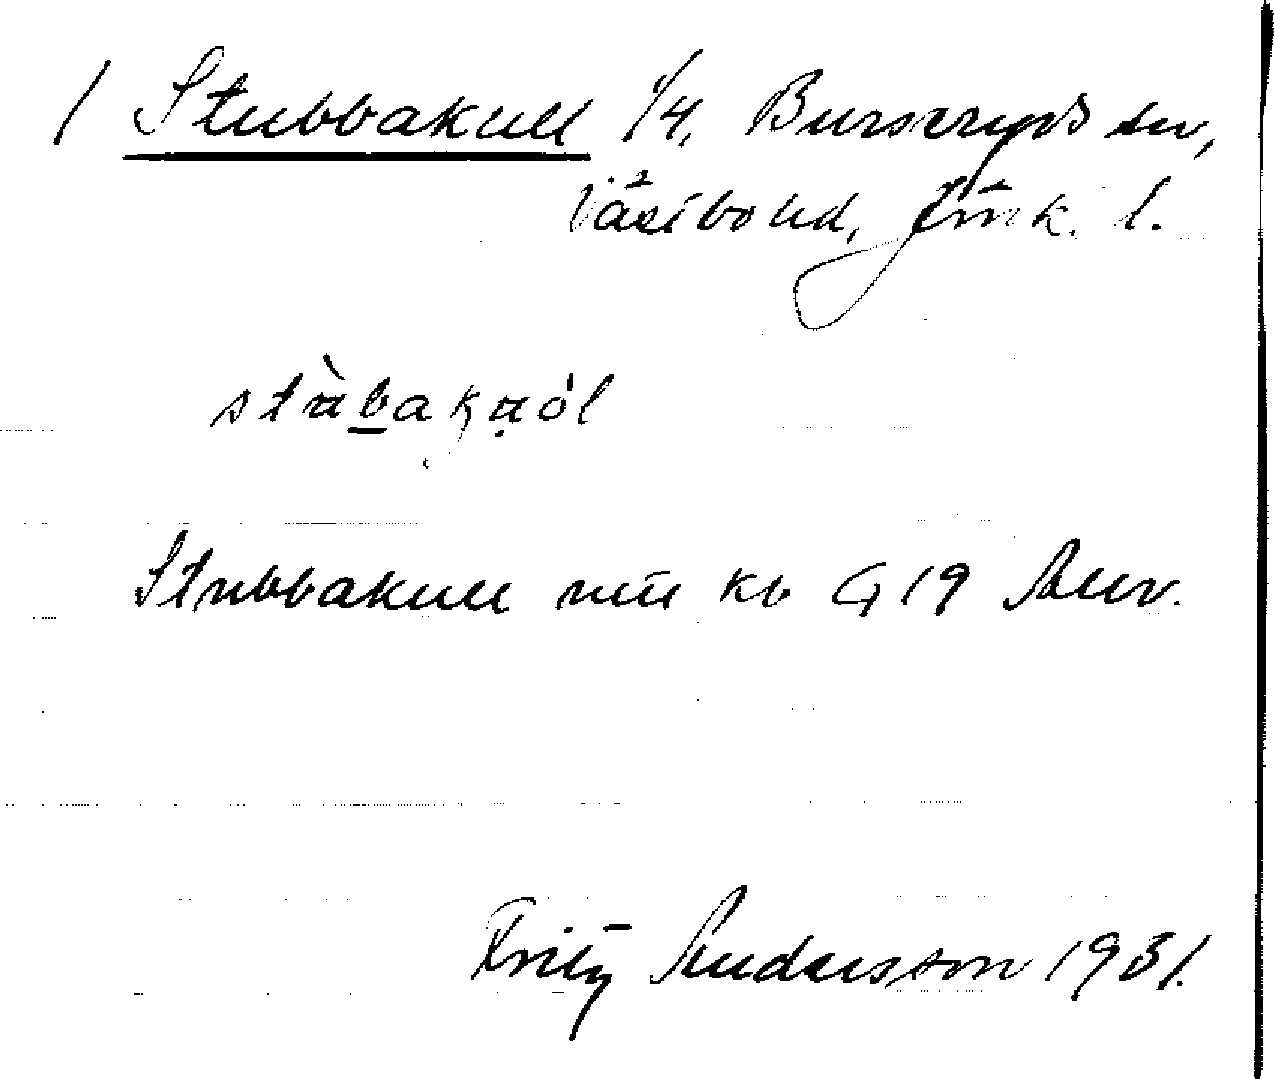 / Stubbakull 1/4, Burseryds sn,
Västbo hd, Jönk. l.
stùbakạól
Stubbakull kb G 19
Fritz Andersson 1931.